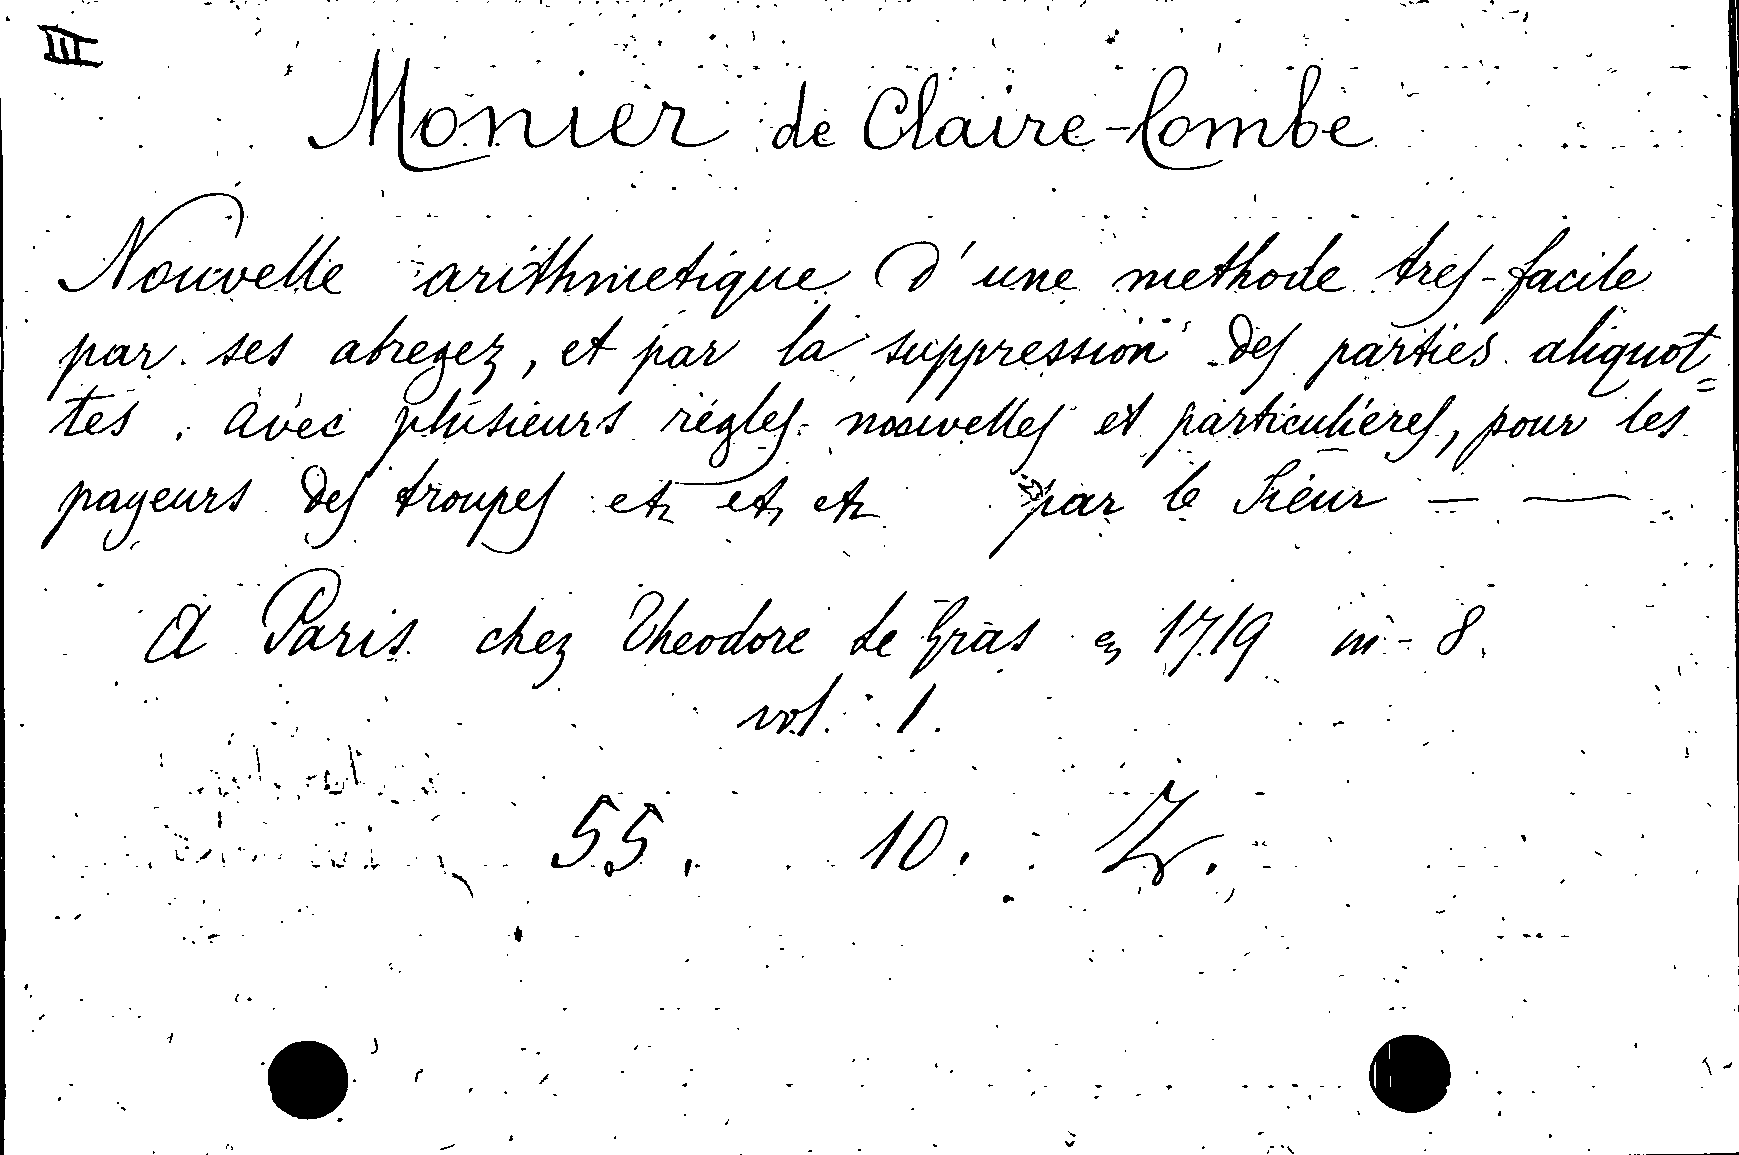 III
Monier de Claire-Combe
Nouvelle arithmetique d'une methode tres-facile
par ses abregez, et par la suppression des parties aliquot=
tes. avec plusieurs régles nouvelles et particulières, pour les
payeurs des troupes etc etc etc par le Sieur — —
A Paris chez Theodore Le Gras en 1719 in-8.
vol. 1.
55. 10. Z.